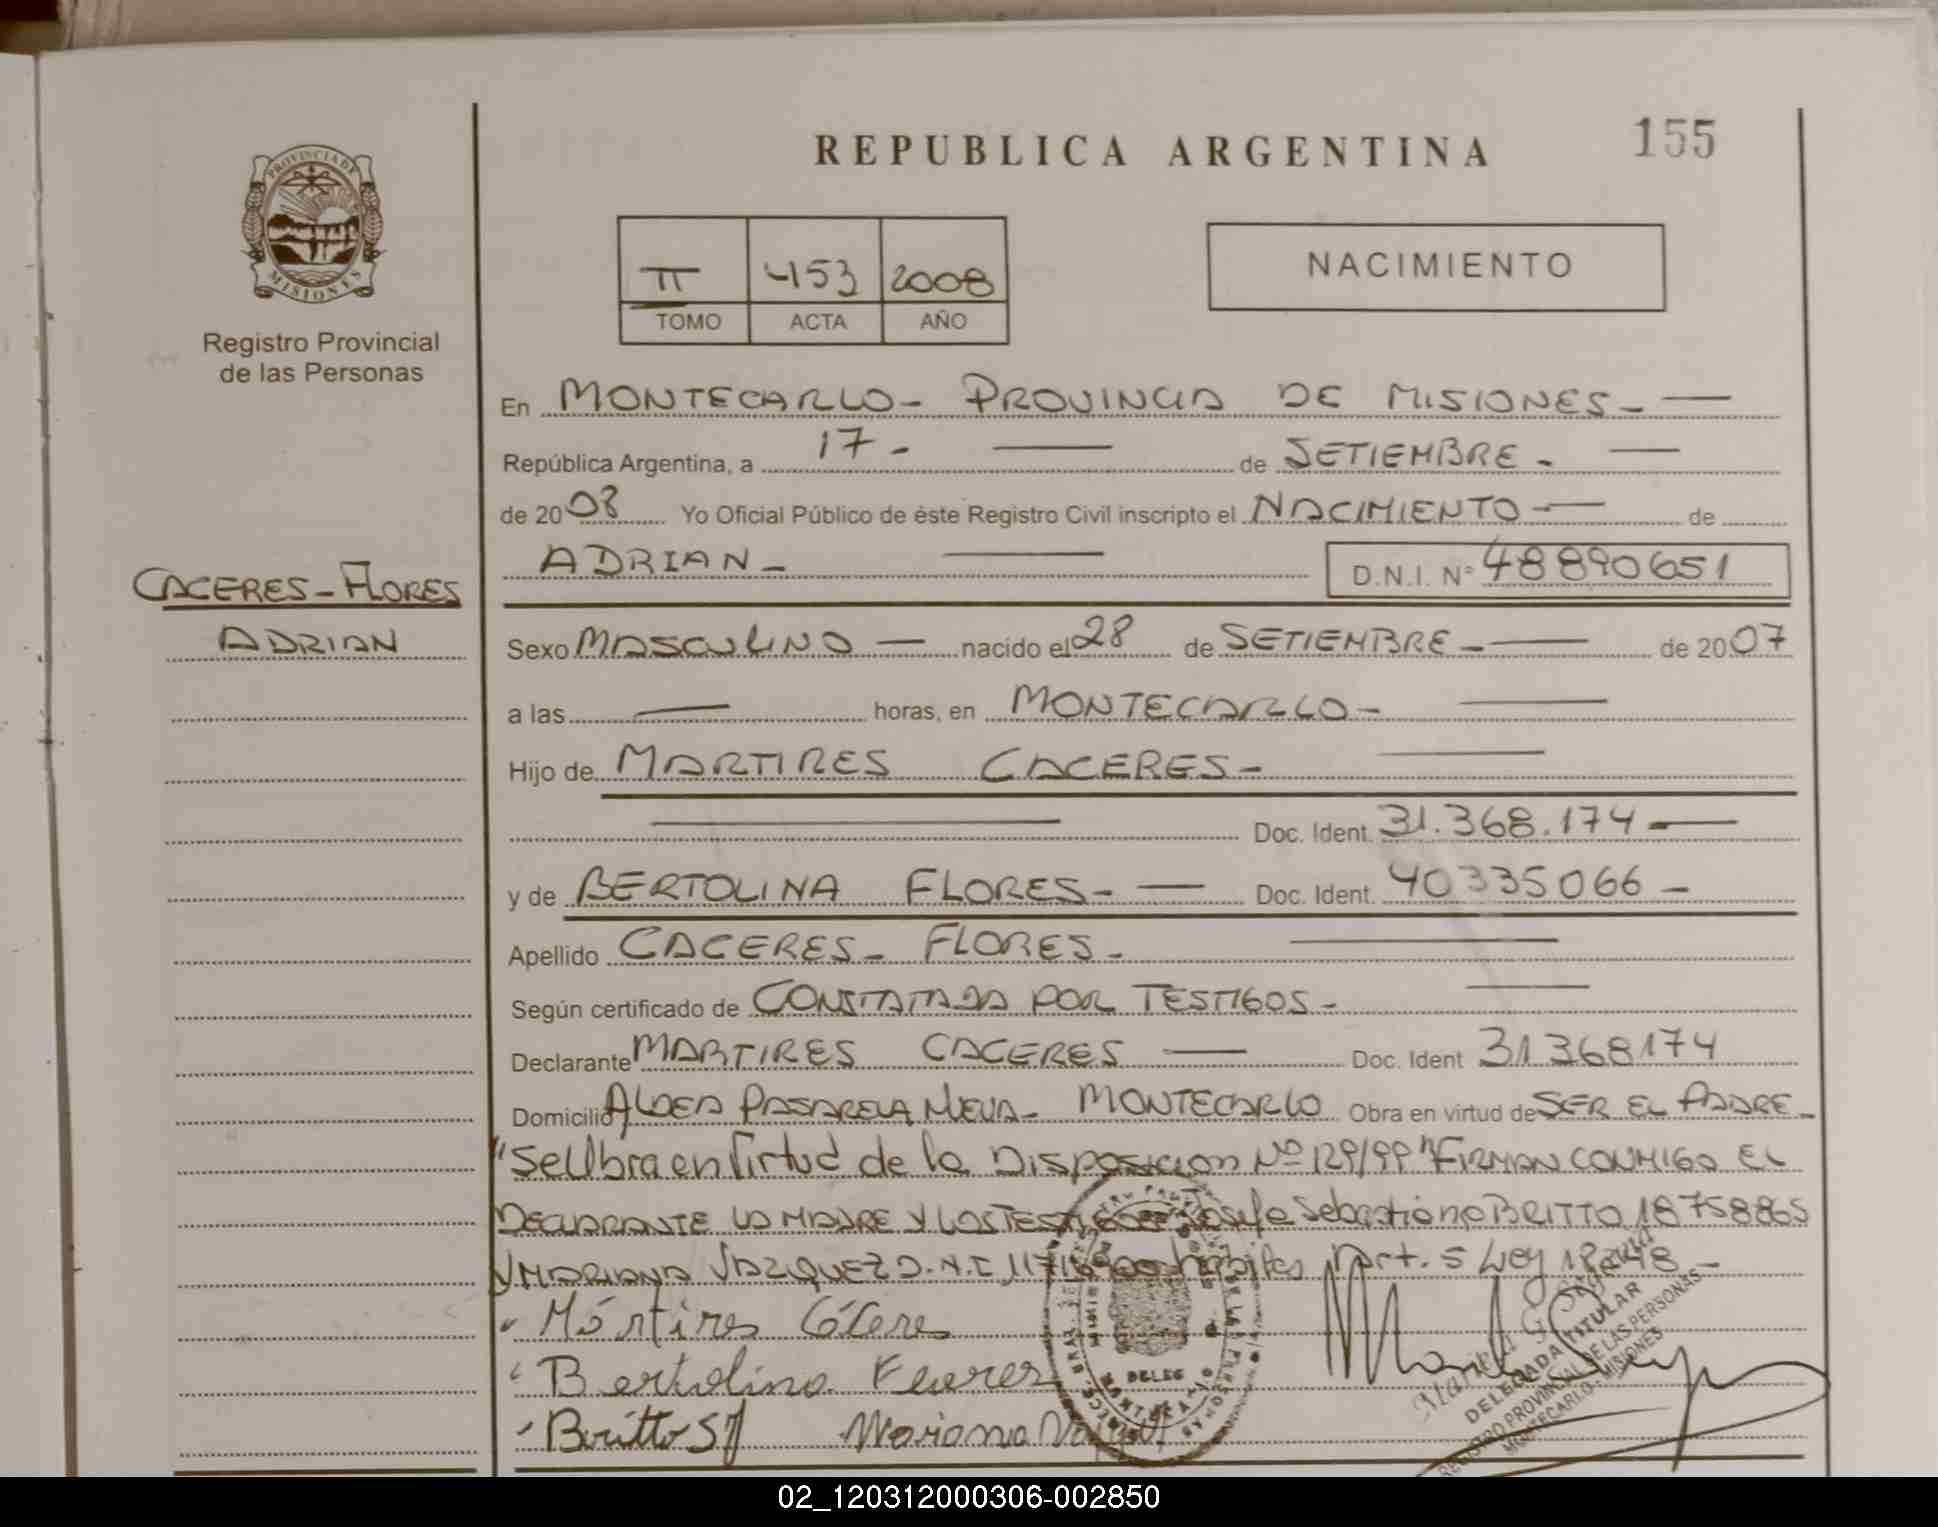 REPUBLICA ARGENTINA
155
PROVINCIA DE
MISIONES
Registro Provincial
de las Personas
II 453 2008
TOMO ACTA AÑO
NACIMIENTO
En MONTECARLO - PROVINCIA DE MISIONES -
República Argentina, a 17 - de SETIEMBRE -
de 2008 Yo Oficial Público de éste Registro Civil inscripto el NACIMIENTO - de
ADRIAN - D.N.I. Nº 48890651
CACERES - FLORES
ADRIAN
Sexo MASCULINO - nacido el 28 de SETIEMBRE - de 2007
a las — horas, en MONTECARLO -
Hijo de MARTIRES CACERES -
Doc. Ident. 31.368.174 -
y de BERTOLINA FLORES - Doc. Ident. 40335066 -
Apellido CACERES - FLORES -
Según certificado de CONSTATADA POR TESTIGOS -
Declarante MARTIRES CACERES — Doc. Ident 31368174
Domicilio ALDEA PASARELA NUEVA - MONTECARLO Obra en virtud de SER EL PADRE -
"Se Libra en Virtud de la Disposicion Nº 129/99" FIRMAN CONMIGO EL
DECLARANTE LA MADRE Y LOS TESTIGOS Sebastiana BRITTO 18758865
Y MARIANA VAZQUEZ D.N.I. habiles Art. 5 Ley 18248 -
Mártires Cácere
Bertolina
Britto SJ Mariana
DELEG
DELEGADA TITULAR
REGISTRO PROVINCIAL DE LAS PERSONAS
MONTECARLO - MISIONES
02_120312000306-002850